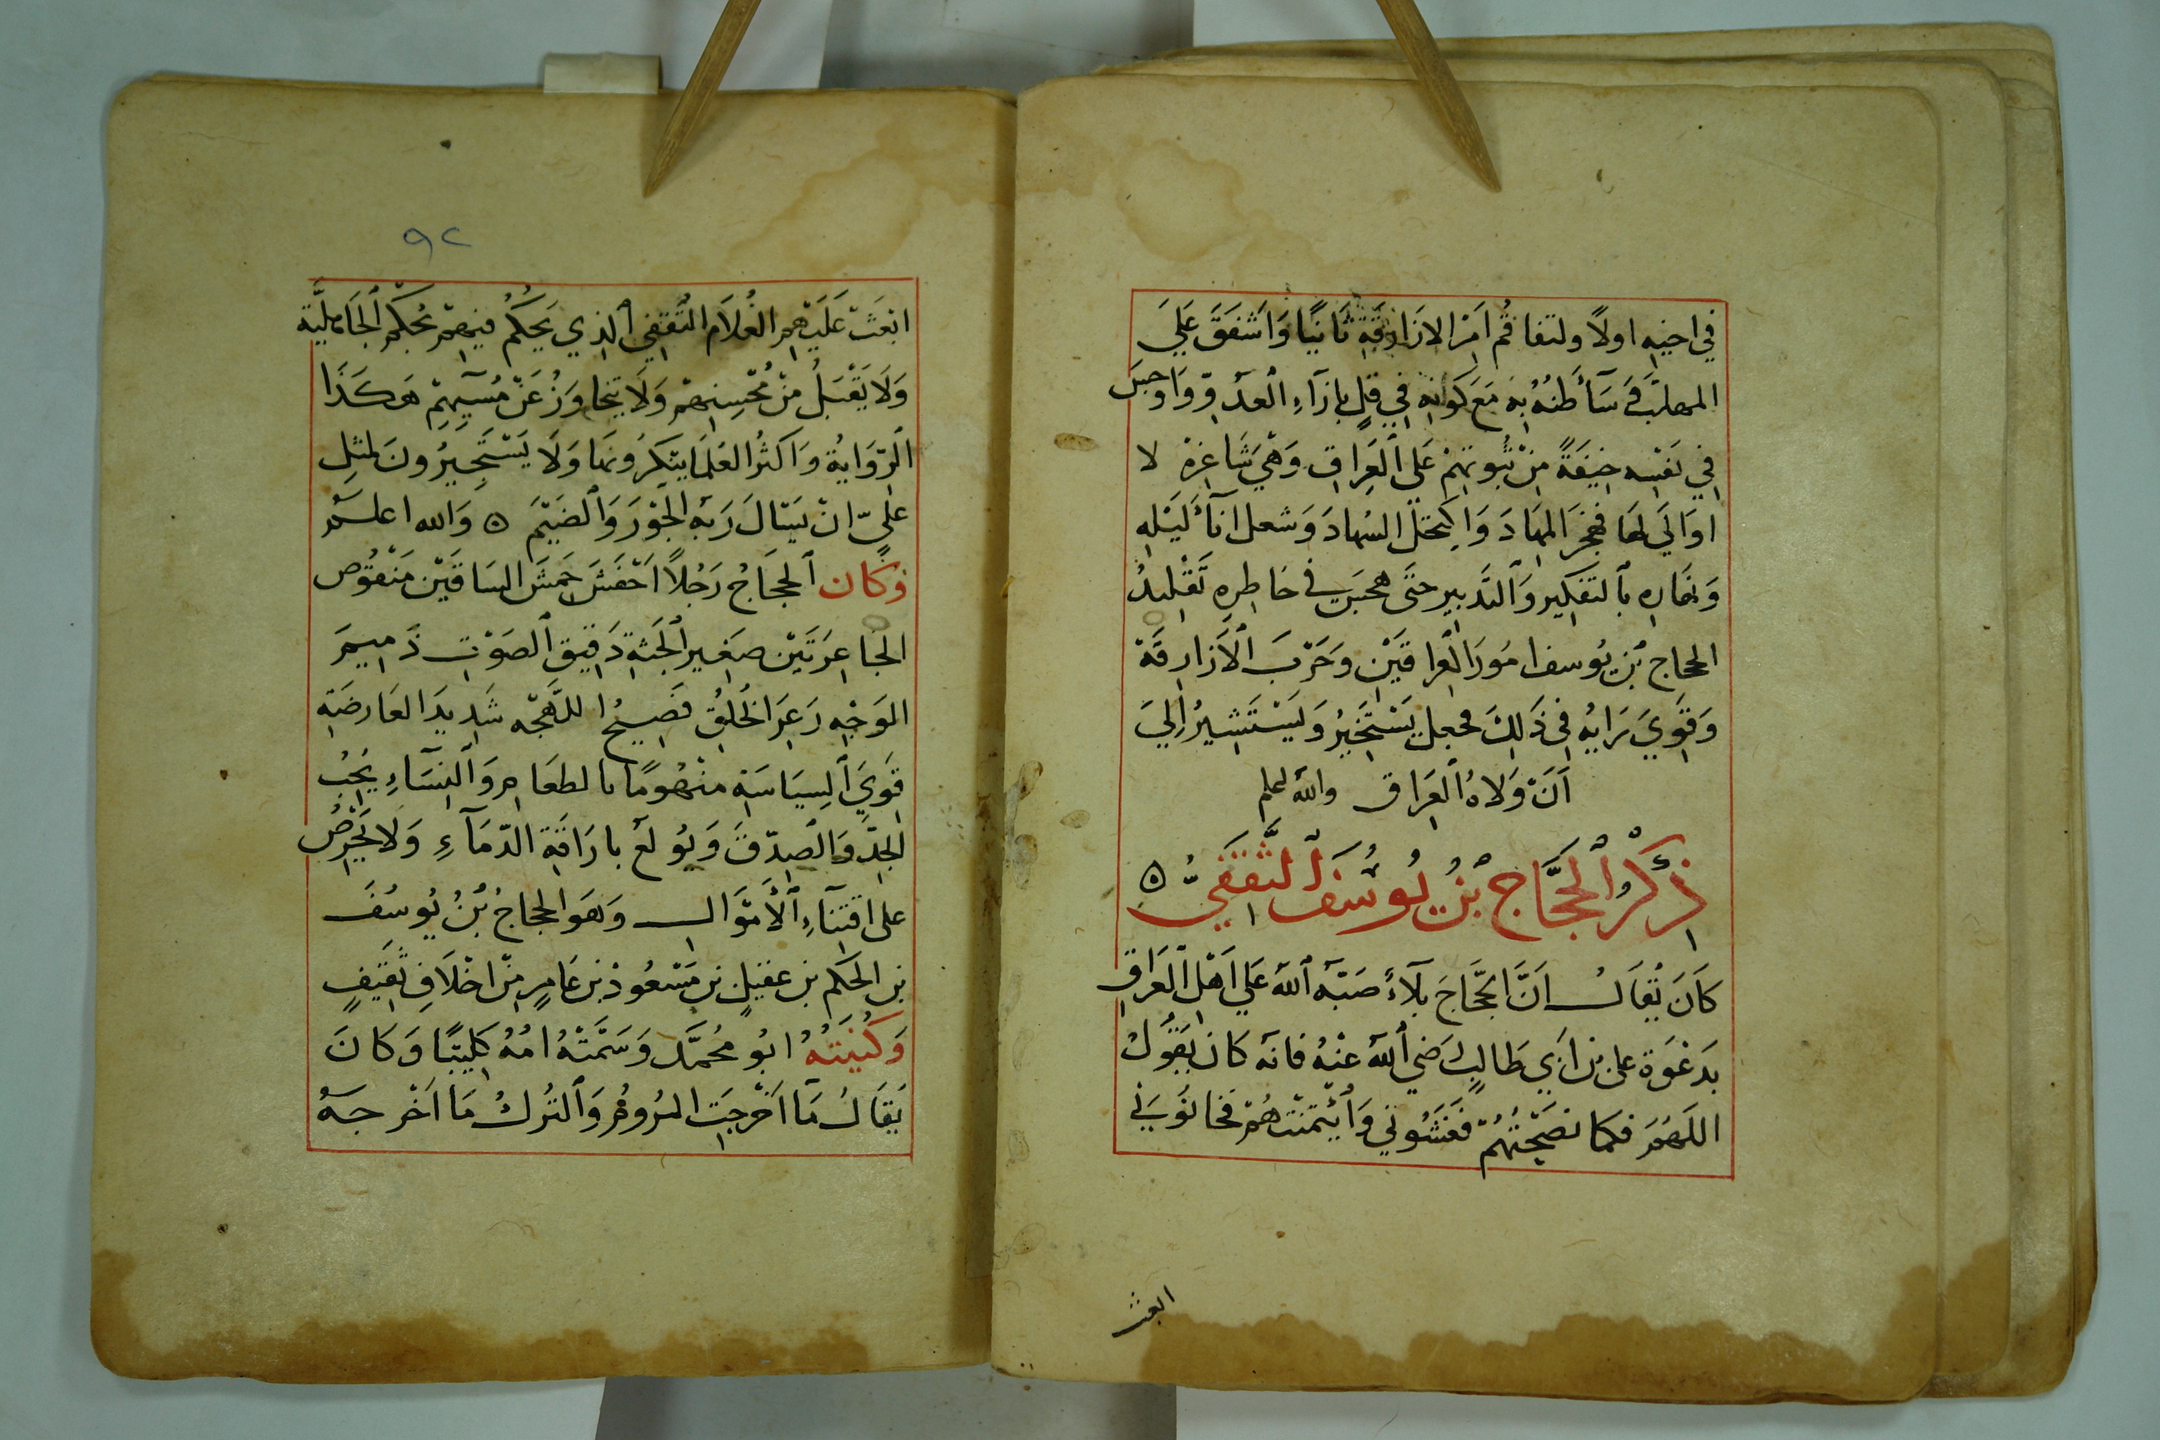 في اخيه اولًا ولتفاقم امر الازارقة ثانيًا واشفق علي
المهلب فسآء ظنه به مع كونه في قل بازآء العدو واوجس
في نفسه خيفةً من ثوبتهم على العراق وهي شاغرة لا
اوالي لها فهجر المهاد واكتحل السهاد وشعل انآء ليله
ونهاره بالتفكير والتدبير حتى هجس في خاطره تقليد
الحجاج بن يوسف امور العراقين وحرب الازارقة
وقوي رايه في ذلك فجعل يستخير ويستشير الي
ان ولاه العراق والله اعلم
ذكر الحجاج بن يوسف الثقفي
كان يقال ان الحجاج بلاءً صبه الله علي اهل العراق
بدعوة علي بن ابي طالب رضي الله عنه فانه كان يقول
اللهم فكما نصحتهم فغشوني وأيتمنتهم فخانوني
ابعث
٩٢
ابعث عليهم الغلام الثقفي الذي يحكم فيهم بحكم الجاهلية
ولا يقبل من محسنهم ولا يتجاوز عن مسيهم هكذا
الرواية واكثر العلما ينكرونها ولا يستجيزون لمثل
علي ان يسال ربه الجور والضيم ٥ والله اعلم
وكان الحجاج رجلًا احفش حمش الساقين منقوص
الجاعرتين صغير الجثة دقيق الصوت ذميم
الوجه زعر الخلق فصيح اللهجه شديد العارضة
قوي السياسة منهومًا بالطعام والنسآء يحب
الجد والصدق ويولع باراقة الدمآء ولا يحرص
على اقتنآء الأموال وهو الحجاج بن يوسف
بن الحكم بن عقيل بن مسعود بن عامر من اخلاف ثقيف
وكنيته ابو محمد وسمته امه كليبًا وكان
يقال ما اخرجت الروم والترك ما اخرجه